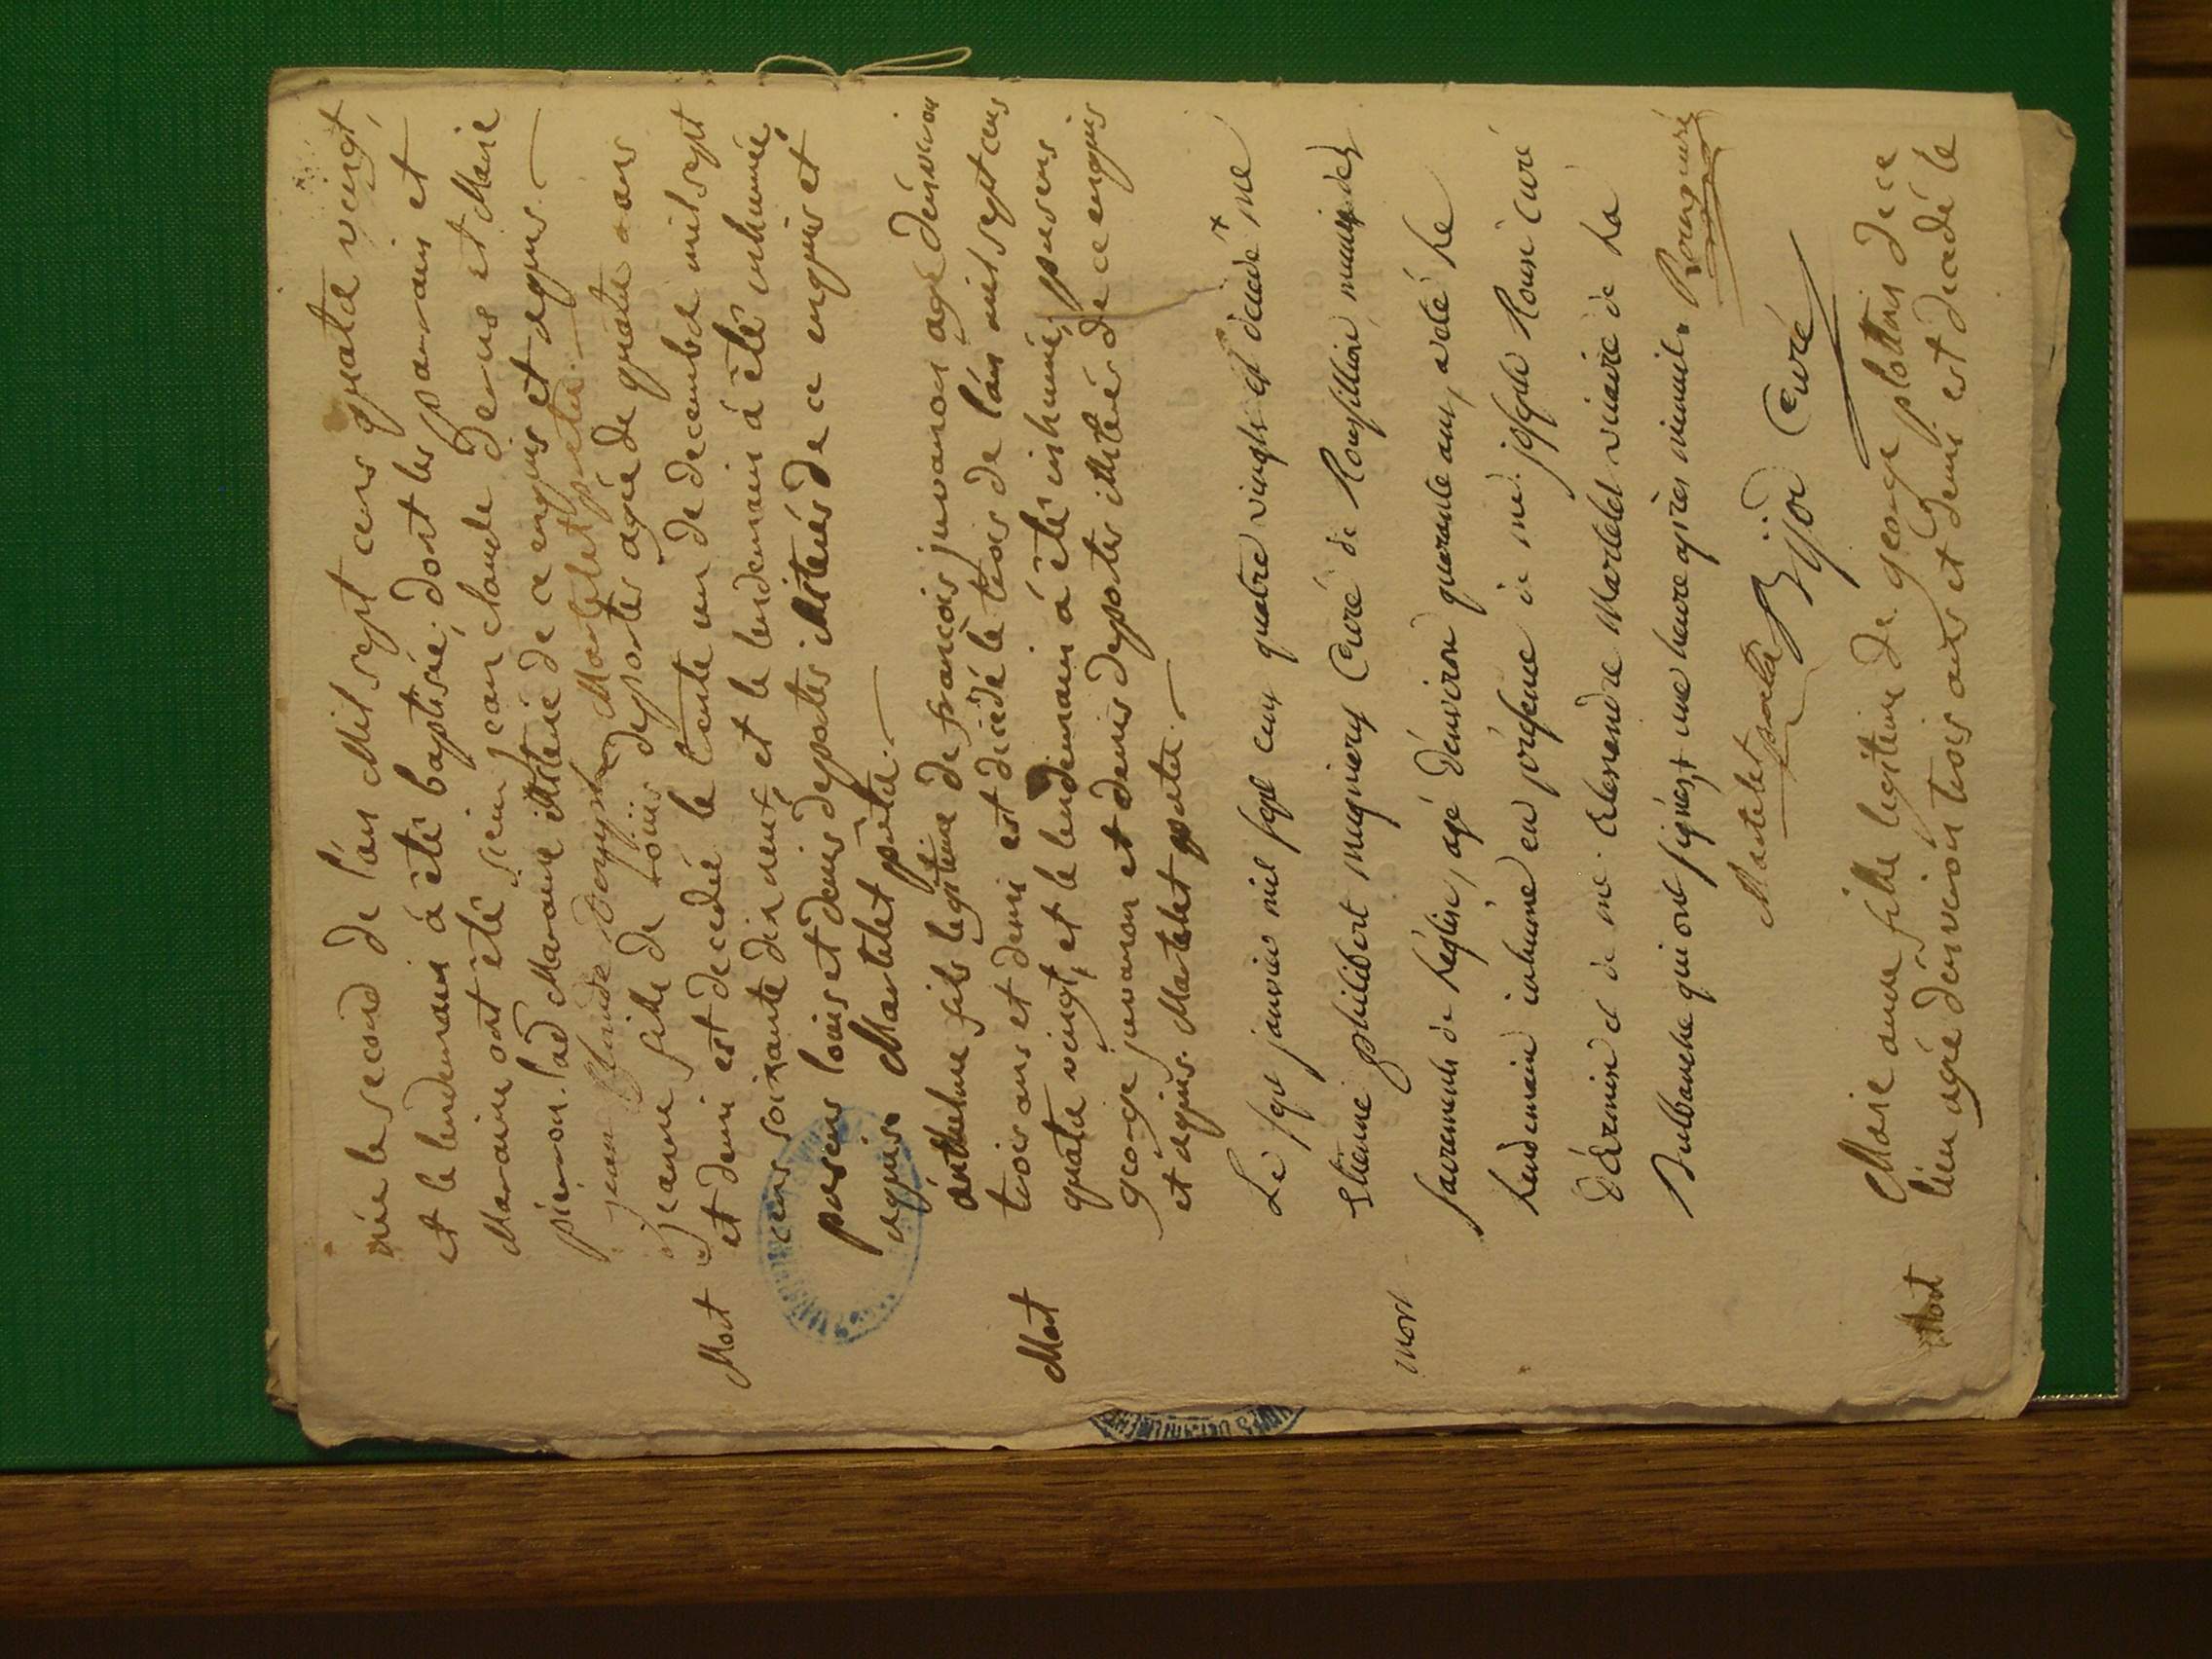 née le second de l'an Mil sept cens quatre veingt,
et le lendemain à été baptisée, dont les parrain et
Marraine ont été sieur jean claude Denis et Marie
piernon. lad Marraine illiterée de ce enquis et requis.
jean Claude Martelet ptre
jeanne fille de Louis desportes agée de quatre ans
Mort et demi est decedée le trente un de decembre mil sept
cens soixante dix neuf, et le lendemain à été inhumée,
presens louis et denis desportes illiterés de ce enquis et
requis. Martelet ptre.
anthelme fils legitime de francois juvanon agé d'environ
trois ans et demi est décédé le trois de l'an mil sept cens
Mort quatre veingt, et le lendemain à été inhumé, presens
george juvanon et denis desportes illiterés de ce enquis
et requis. Martelet ptre.
Le sept janvier mil sept cens quatre vingts est decedé + me
Etienne philibert mugniery Curé de Roussillion munis des
mort sacrements de l'église, agé d'environ quarante ans, a été le
lendemain inhumé en présence de me. joseph Roux curé
et de me Martelet vicaire de la
qui ont signés + une heure après minuit. Roux curé
Martelet Bijod Curé
Marie anne fille legitime de george plottons de ce
Mort lieu agée d'environ trois ans et demi est decedé le